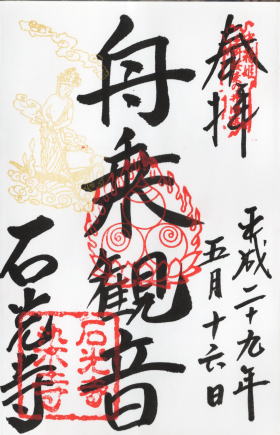 奉拝
平成二十九年
五月十六日
舟乗観音
石光寺
石光寺
染寺